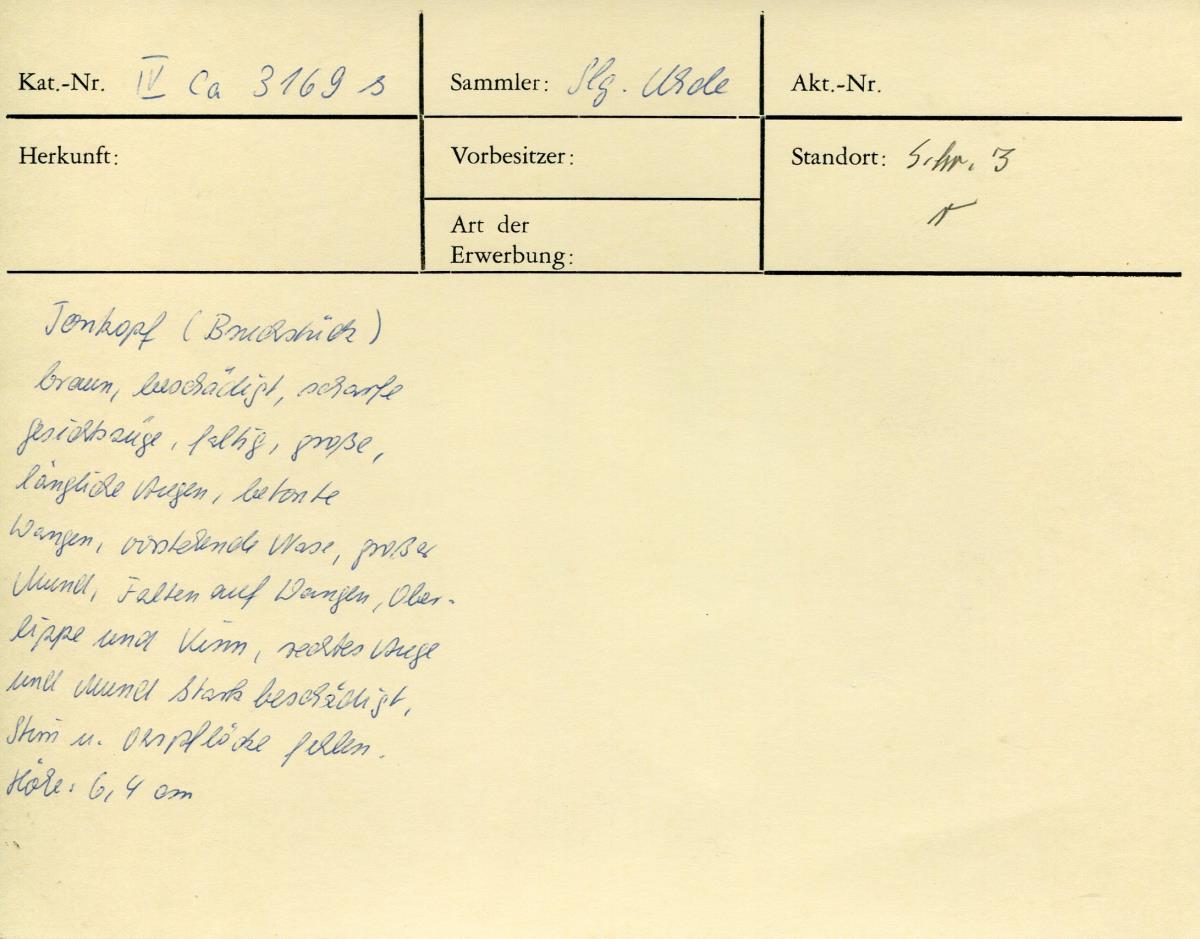 Kat.-Nr. IV Ca 3169 s
Sammler: Slg. Uhde
Akt.-Nr.
Herkunft:
Vorbesitzer:
Standort: Schr. 3
Art der
Erwerbung:
Tonkopf (Bruchstück)
braun, beschädigt, scharfe
Gesichtszüge, faltig, große,
längliche Augen, betonte
Wangen, vorstehende Nase, großer
Mund, Falten auf Wangen, Ober-
lippe und Kinn, rechtes Auge
und Mund stark beschädigt,
Stirn u. Ohrpflöcke fehlen.
Höhe: 6,4 cm